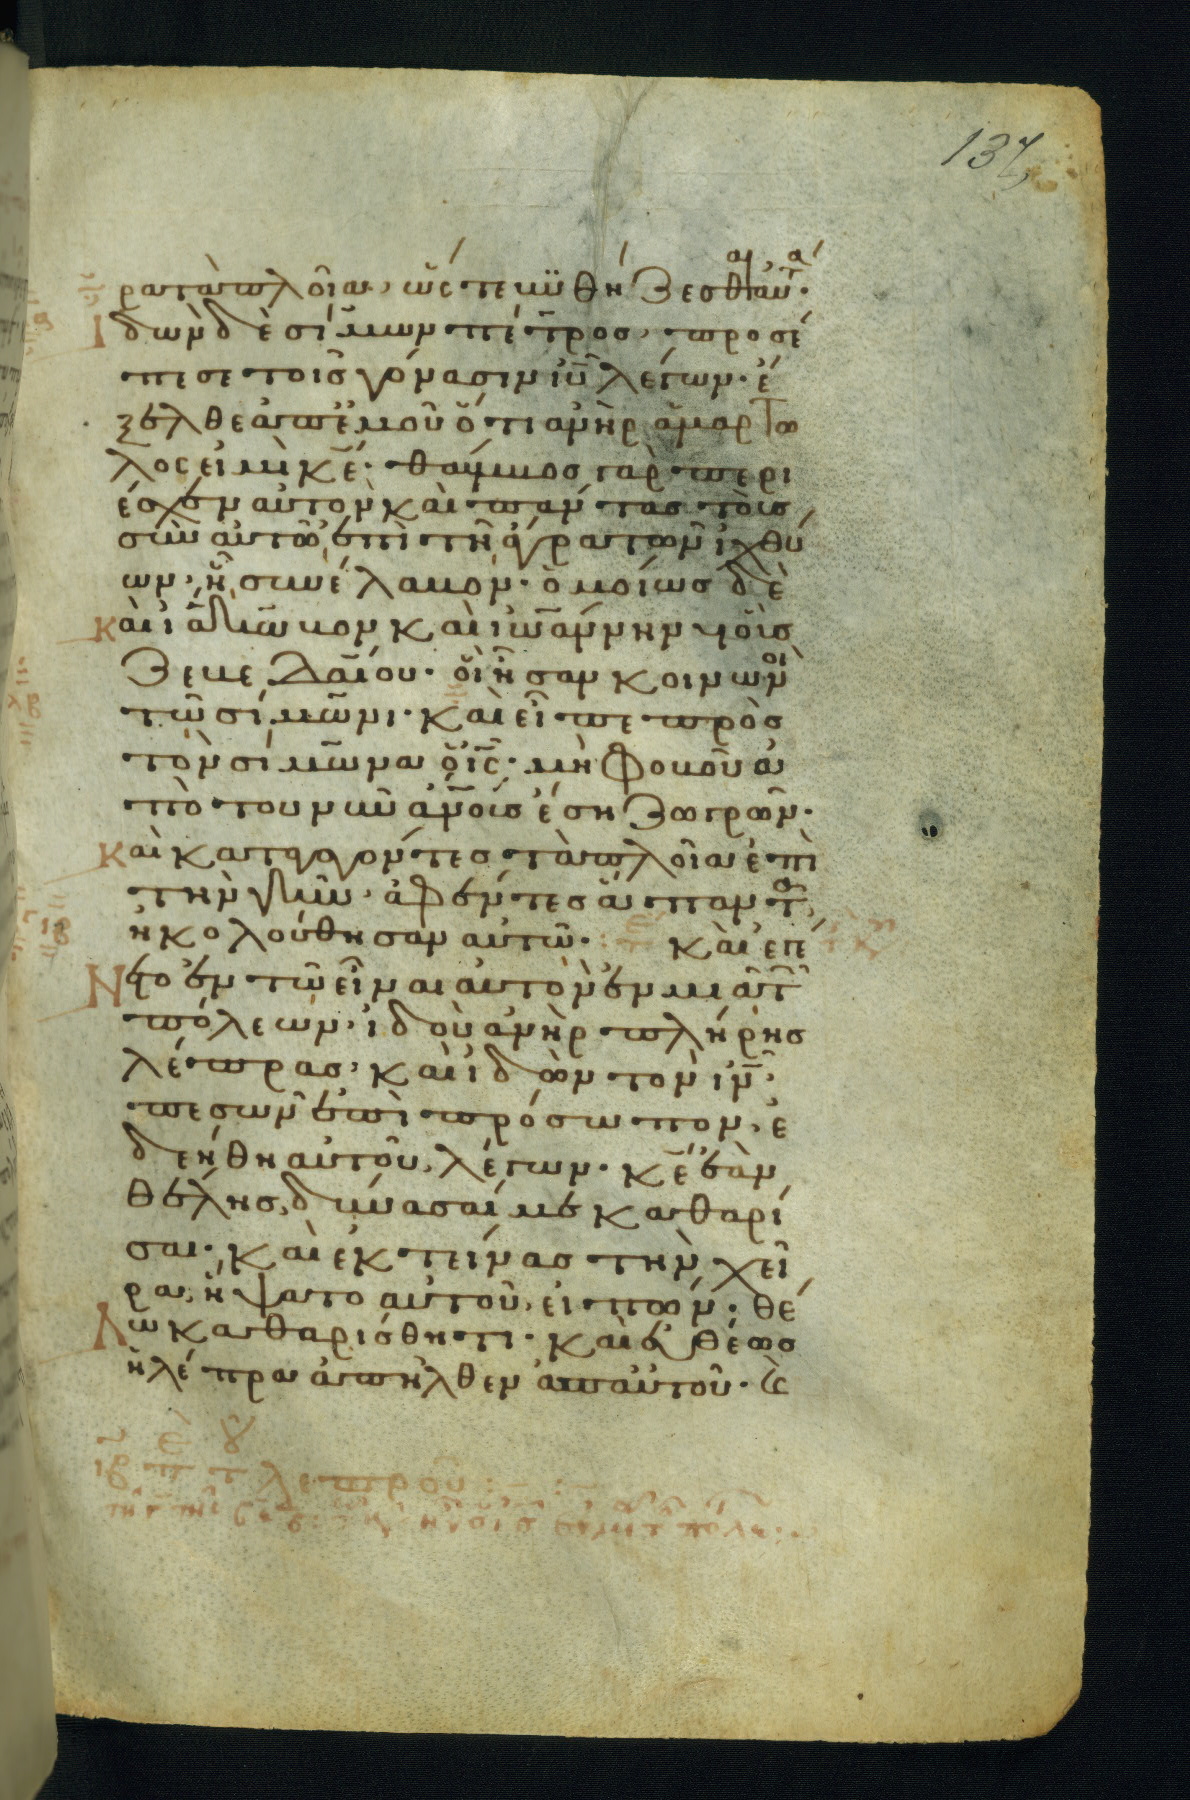 137
ρα τὰ πλοῖα, ὥστε βυθήζεσθαι αὐτά·
Ἰδὼν δὲ σίμων πέτρος, προσέ
πεσε τοῖς γόνασιν ἰῦ λέγων· ἔ
ξελθε ἀπ ἐμοῦ ὅτι ἀνὴρ ἁμαρτω
λός εἰμὶ κε̄· θάμβος γὰρ περι
έσχεν αὐτὸν καὶ πάντας τοὺς
σὺν αὐτῶ, ἐπὶ τῆ ἄγρα τῶν ἰχθύ
ων, ἧ συνέλαβον· ὁμοίως δὲ
καὶ ἰάκωβον καὶ ἰωάννην υἱοὺς
Ζεβεδαίου· οἳ ἦσαν κοινωνοὶ
τῶ σίμωνι· καὶ εἶπε πρὸς
τὸν σίμωνα ὁ ις̄· μὴ φοβοῦ ἀ
πὸ του νῦν ἀνοὺς ἔση ζωγρῶν·
Καὶ καταγαγόντες τὰ πλοῖα ἐπὶ
τὴν γῆν, ἀφέντες ἅπαντα,
ἠκολούθησαν αὐτῶ· καὶ ἐγέ
Νετο ἐν τῶ εἶναι αὐτὸν ἐν μιᾶ τῶν
πόλεων, ἰδοὺ ἀνὴρ πλήρης
λέπρας, καὶ ἰδὼν τὸν ιν̄,
πεσὼν ἐπὶ πρόσωπον, ἐ
δεήθη αὐτοῦ, λέγων· κε̄ ἐὰν
θέλης, δύνασαί με καθαρί
σαι· καὶ ἐκτείνας τὴν χεῖ
ρα, ἥψατο αὐτοῦ, εἰπών· θέ
Λω καθαρίσθητι· καὶ εὐθέως
ἡ λέπρα ἀπῆλθεν ἀπ αὐτοῦ· καὶ
ιβ π τ λεπροῦ